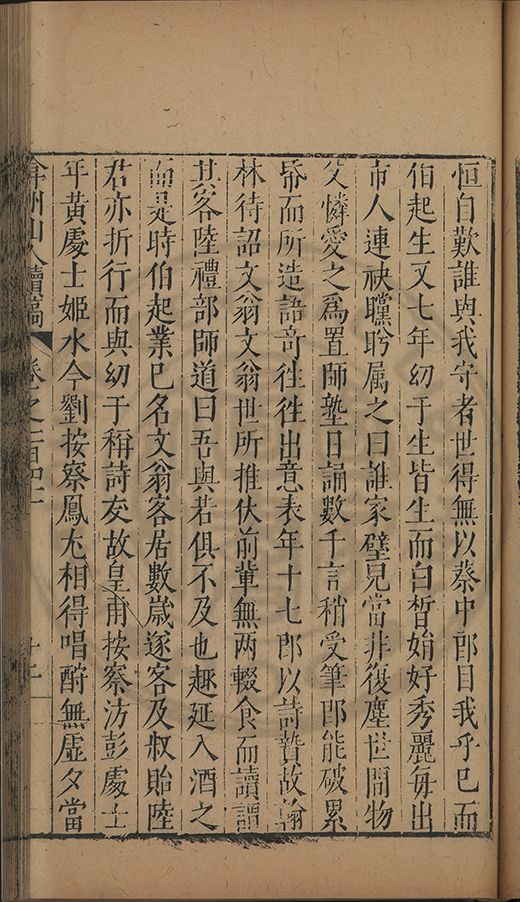 恒自歎誰與我守者世得無以蔡中郎目我乎已而
伯起生又七年幼于生皆生而白皙娟好秀麗每出
市人連袂矘眄属之曰誰家璧兒當非復塵世間物
父憐愛之爲置師塾日誦數千言稍受筆即能破累
帋而所造語奇徃徃出意表年十七即以詩贄故翰
林待詔文翁文翁世所推伏前輩無两輟食而讀謂
其客陸禮部師道曰吾與若俱不及也趣延入酒之
而是時伯起業已名文翁客居數歲逐客及叔貽陸
君亦折行而與幼于稱詩友故皇甫按察汸彭處士
年黃處士姬水今劉按察鳳尤相得唱酧無虛夕當
弇州山人續稿
卷之一百四十
十二